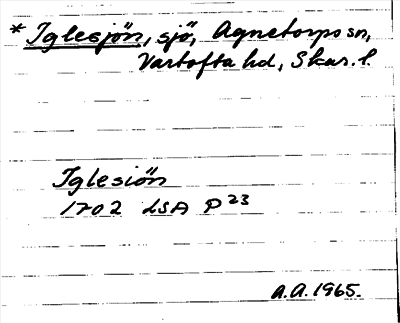 * Iglesjön, sjö, Agnetorps sn,
Vartofta hd, Skar. l.
Iglesiön
1702 LSA P23
A.A. 1965.